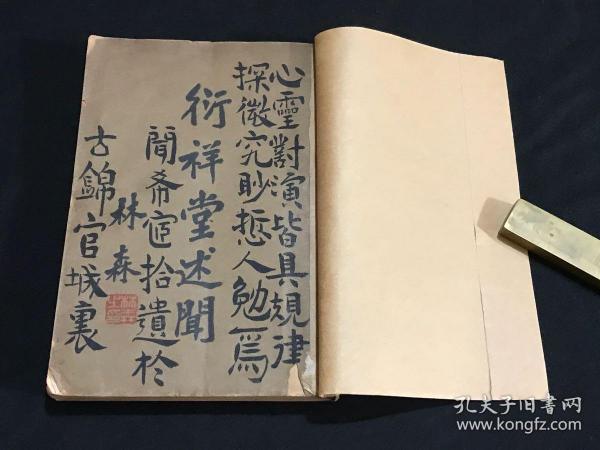 心靈對演皆具規律
探微究眇哲人勉爲
衍祥堂述聞
聞希宧拾遺於
古錦官城裏
林森
孔夫子旧书网
www.kongfz.com